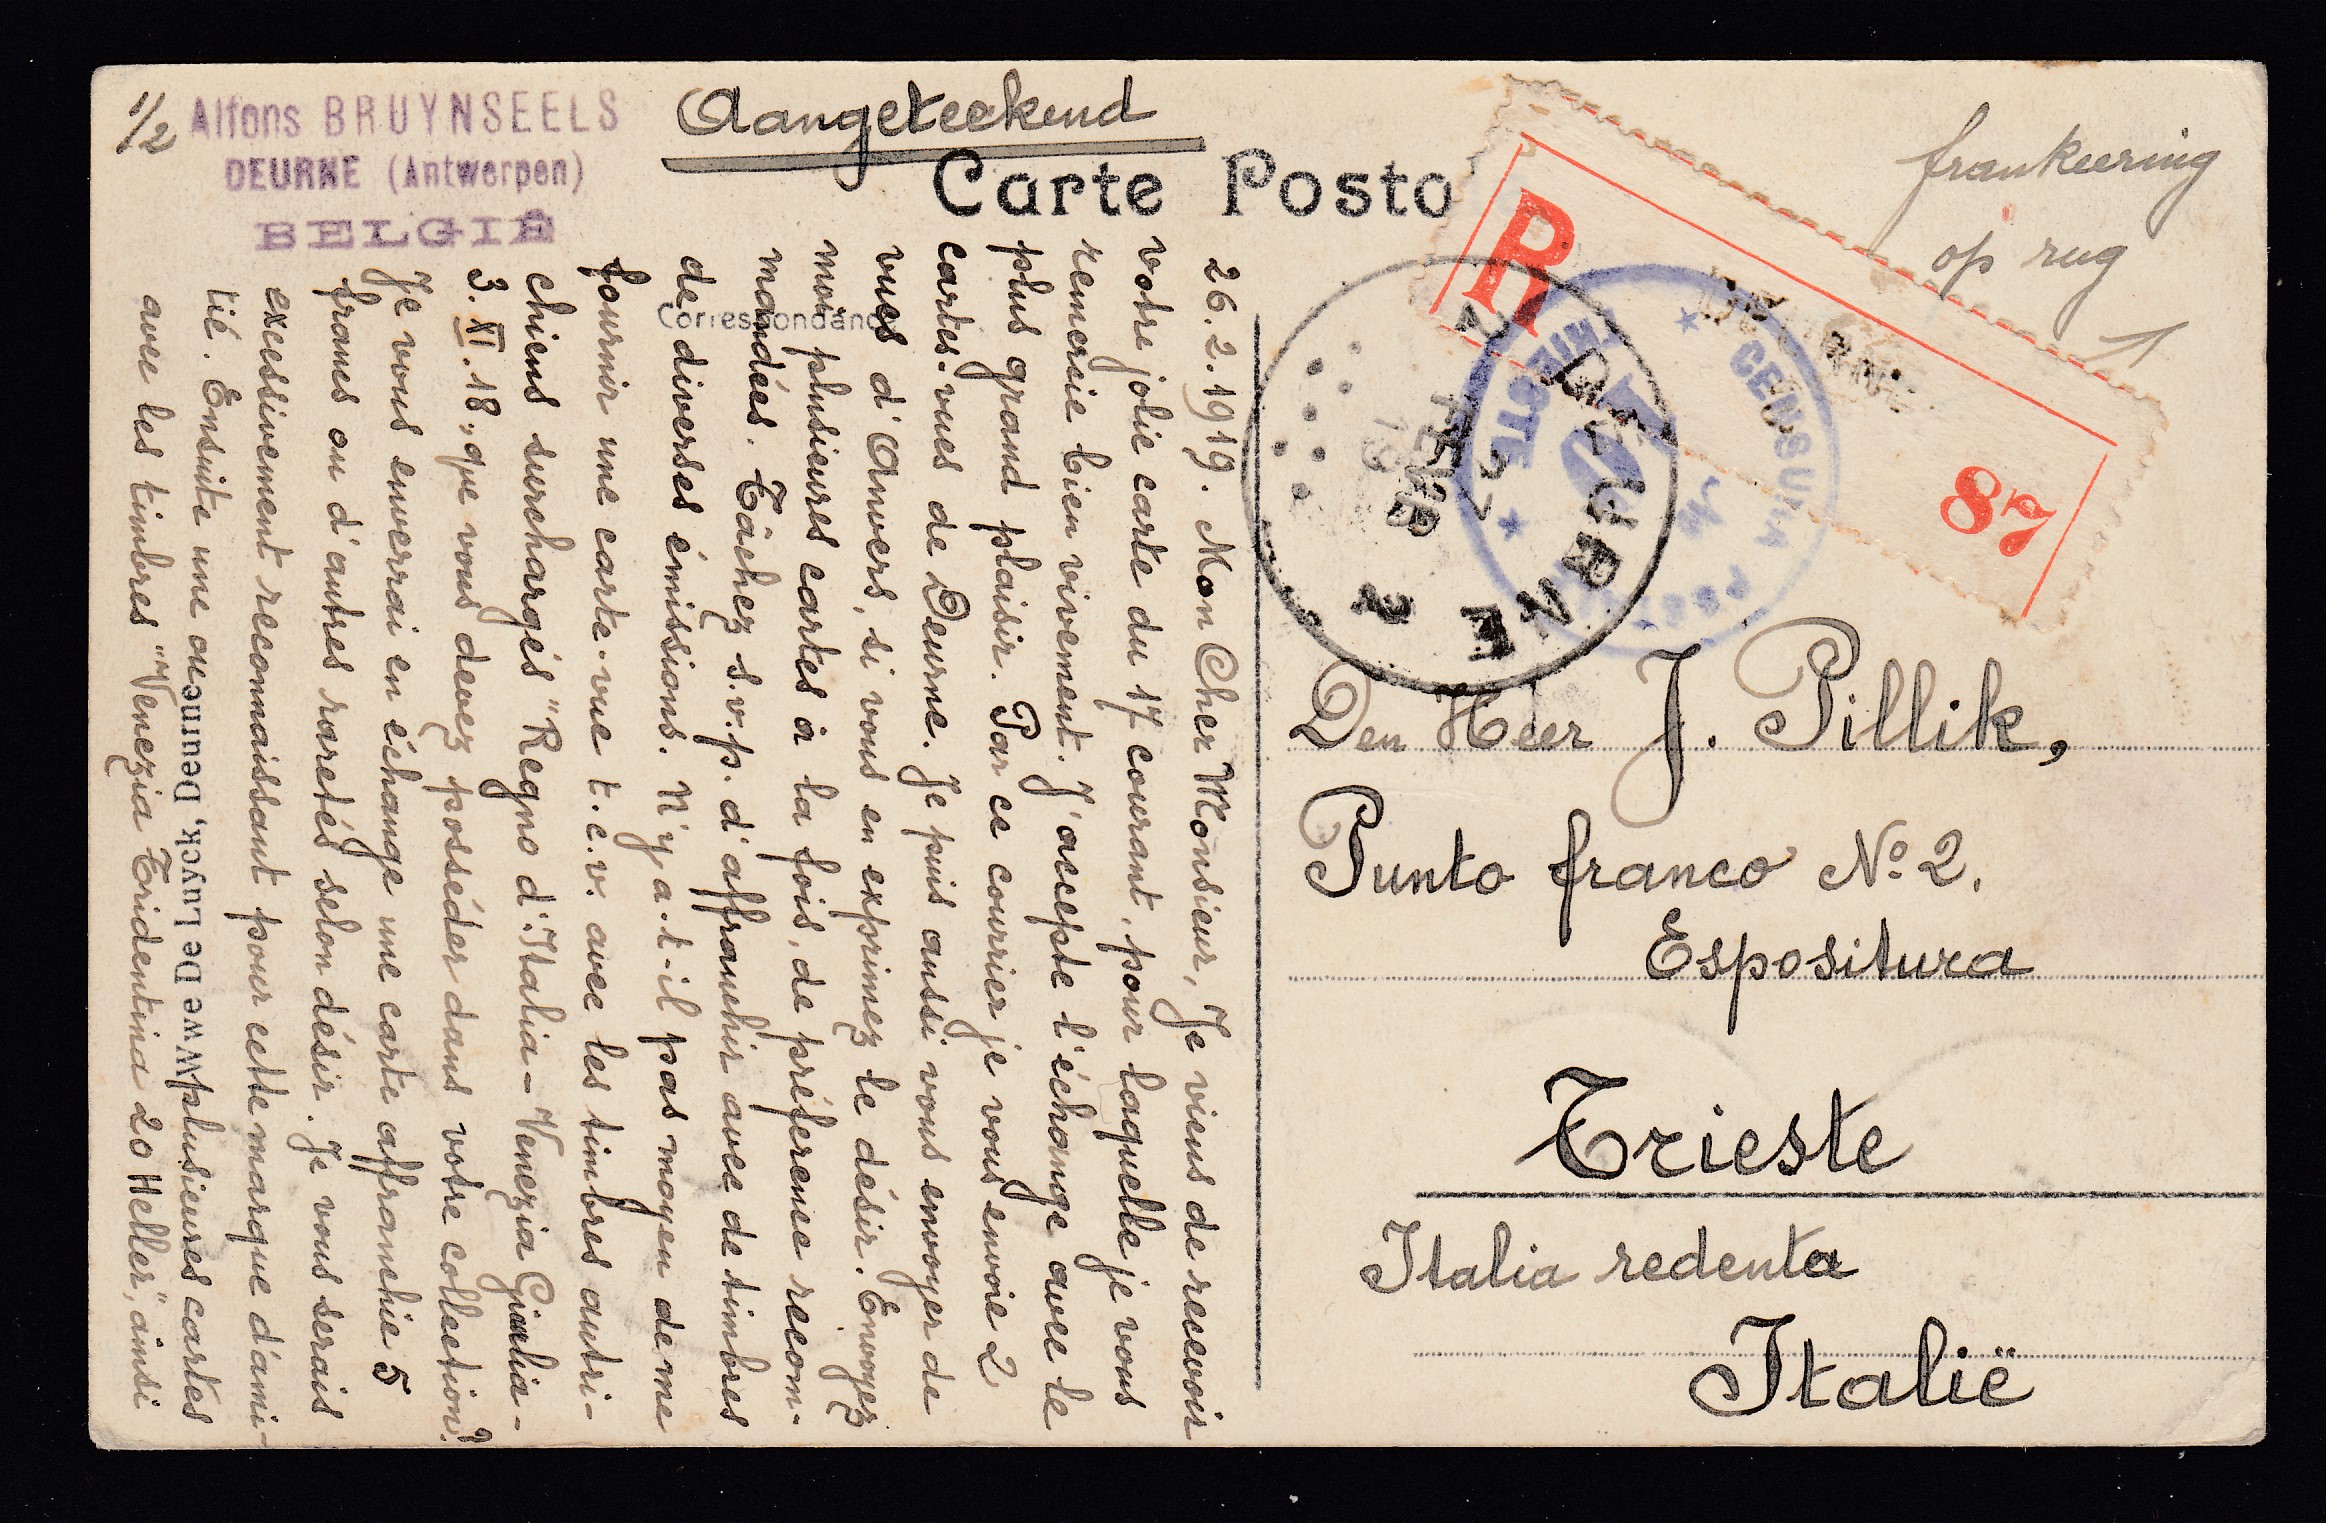 1/2
Alfons BRUYNSEELS
DEURNE (Antwerpen)
BELGIË
Aangeteekend
Carte Posta
Correspondanc
frankeering
op rug
R
DEURNE
87
DEURNE
27
FEVR
19
2
CENSURA POSTA
TRIESTE
No
10
Den Heer J. Pillik,
Punto franco No. 2.
Espositura
Trieste
Italia redenta
Italië
26.2.1919. Mon Cher Monsieur, Je viens de recevoir
votre jolie carte du 17 courant, pour laquelle je vous
remercie bien vivement. J'accepte l'échange avec le
plus grand plaisir. Par ce courrier je vous envoie 2
cartes-vues de Deurne. Je puis aussi vous envoyer de
vues d'Anvers, si vous en exprimez le désir. Envoyez
moi plusieures cartes à la fois, de préférence recom-
mandées. Tâchez s.v.p. d'affranchir avec de timbres
de diverses émissions. N'y a-t-il pas moyen de me
fournir une carte-vue t.c.v. avec les timbres autri-
chiens surchargés "Regno d'Italia - Venezia Giulia -
3.XI.18", que vous devez posséder dans votre collection?
Je vous enverrai en échange une carte affranchie 5
francs ou d'autres raretés selon désir. Je vous serais
excessivement reconnaissant pour cette marque d'ami-
tié. Ensuite une ou plusieures cartes
avec les timbres "Venezia Tridentina 20 Heller", ainsi
Wwe De Luyck, Deurne